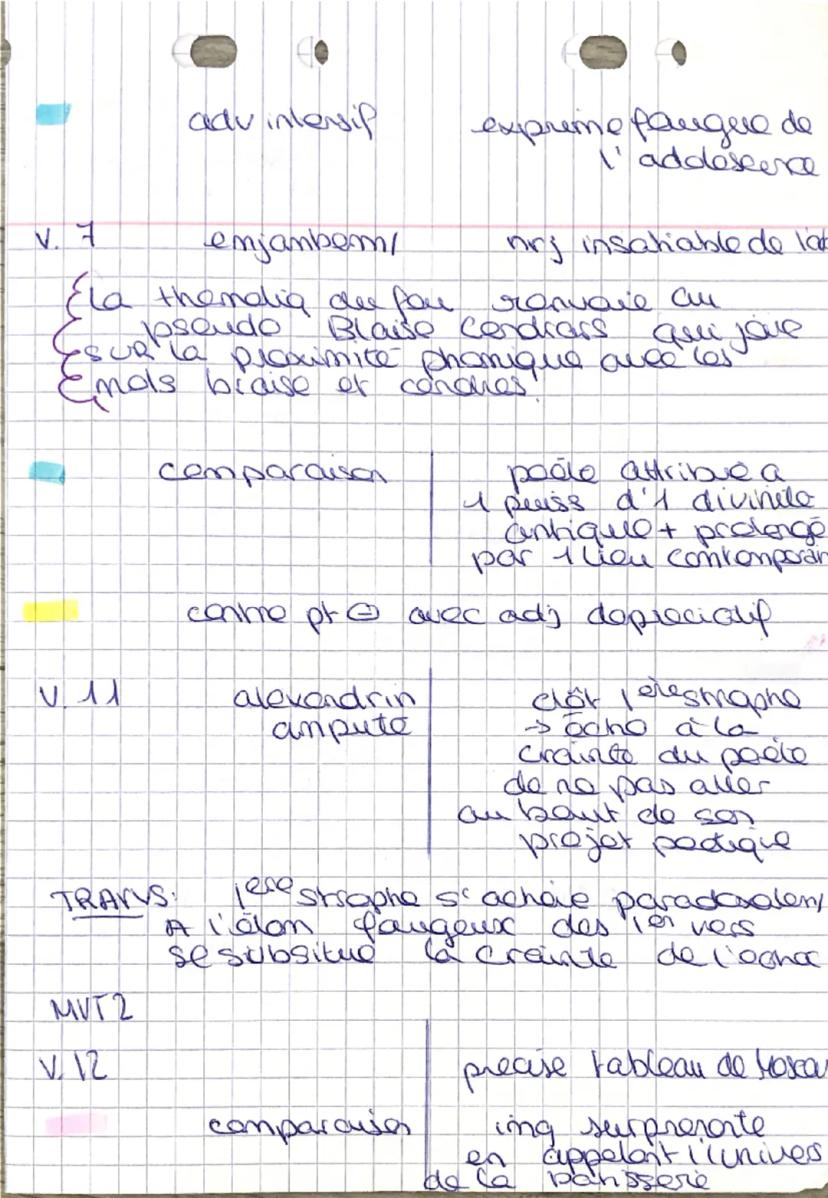 adv intensif exprime fougue de
l'adolescence
v. 7 enjambem/ nrj insatiable de l'at
La thématiq du feu renvoie au
pseudo Blaise Cendrars qui joue
sur la proximité phonique avec les
mots braise et cendres.
comparaison poète attribue à
1 puiss d'1 divinité
antique + prolongé
par 1 lieu contemporain
centre pt ⊖ avec adj dépréciatif
v. 11 alexandrin clôt 1ère strophe
amputé → écho à la
crainte du poète
de ne pas aller
au bout de son
projet poétique
TRANS: 1ère strophe s'achève paradoxalem/
A l'élan fougeux des 1er vers
se subsitue la crainte de l'échec
MVT 2
v. 12 précise tableau de Moscou
comparaison img surprenante
en appelant l'univers
de la patisserie